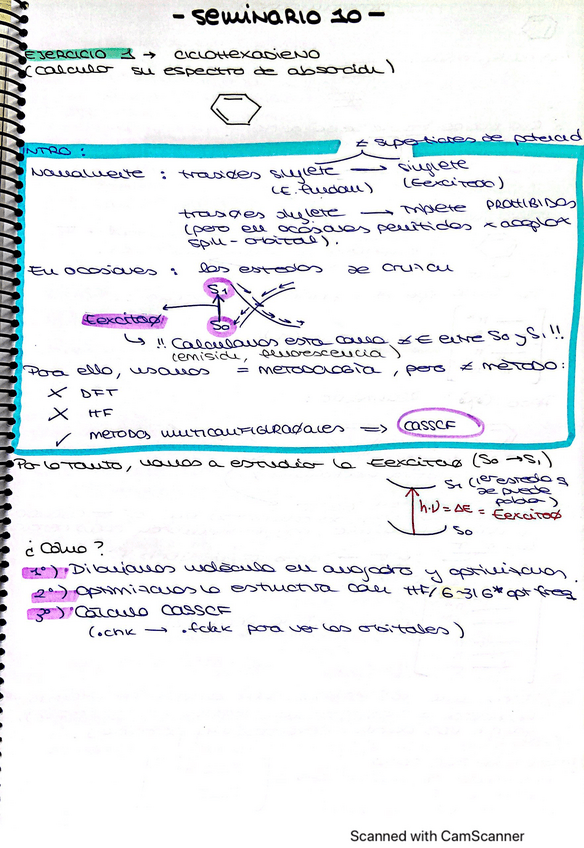 - SEMINARIO 10 -
EJERCICIO 1 → CICLOHEXADIENO
(Calcular su espectro de absorción)
INTRO:
≠ superficies de potencial
Normalmente : transiciones singlete → singlete
(E. fundam) (Eexcitado)
transiciones singlete → triplete PROHIBIDOS
(pero en ocasiones permitidas x acoplox
spin-orbital).
En ocasiones : los estados se cruzan
S1
Eexcitación
S0
↳ !! Calculamos esta como ≠ E entre S0 y S1 !!
(emisión, fluorescencia)
Para ello, usamos = METODOLOGÍA, pero ≠ MÉTODO:
X DFT
X HF
✓ METODOS MULTICONFIGURACIONALES ⇒ CASSCF
Por lo tanto, vamos a estudiar la Eexcitación (S0 → S1)
S1 (1er estado q se puede poblar)
h·ν = ΔE = Eexcitación
S0
¿Cómo?
1º) Dibujamos molécula en avogadro y optimizamos.
2º) Optimizamos la estructura con HF/6-31G* opt freq
3º) Cálculo CASSCF
(.chk → .fchk para ver los orbitales)
Scanned with CamScanner